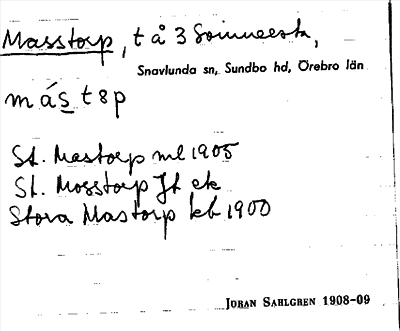 Masstorp, t å 3 Sommersta,
Snavlunda sn, Sundbo hd, Örebro län
más t8p
St. Mastorp ml 1905
St. Mosstorp Jt ek
Stora Mastorp kb 1900
JORAN SAHLGREN 1908-09